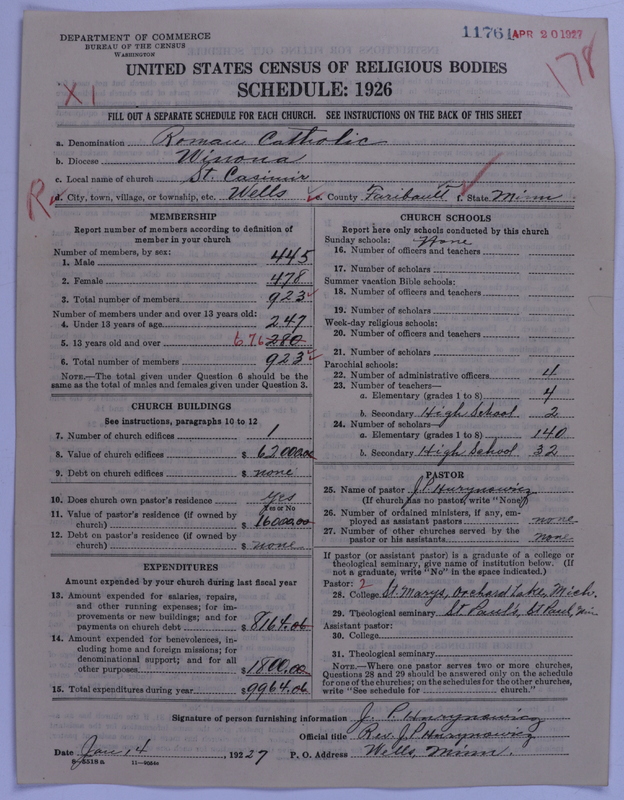 DEPARTMENT OF COMMERCE
BUREAU OF THE CENSUS
WASHINGTON
11761 APR 20 1927
178
X 1
UNITED STATES CENSUS OF RELIGIOUS BODIES
SCHEDULE: 1926
FILL OUT A SEPARATE SCHEDULE FOR EACH CHURCH. SEE INSTRUCTIONS ON THE BACK OF THIS SHEET
a. Denomination Roman Catholic
b. Diocese Winona
c. Local name of church St. Casimir
R
d. City, town, village, or township, etc. Wells e. County Faribault f. State Minn
MEMBERSHIP
Report number of members according to definition of
member in your church
Number of members, by sex:
1. Male 445
2. Female 478
3. Total number of members 923
Number of members under and over 13 years old:
4. Under 13 years of age 247
5. 13 years old and over 676 280
6. Total number of members 923
NOTE.—The total given under Question 6 should be the
same as the total of males and females given under Question 3.
CHURCH BUILDINGS
See instructions, paragraphs 10 to 12
7. Number of church edifices 1
8. Value of church edifices $ 62000.00
9. Debt on church edifices $ none
10. Does church own pastor's residence Yes
Yes or No
11. Value of pastor's residence (if owned by
church) $ 16000.00
12. Debt on pastor's residence (if owned by
church) $ none
EXPENDITURES
Amount expended by your church during last fiscal year
13. Amount expended for salaries, repairs,
and other running expenses; for im-
provements or new buildings; and for
payments on church debt $ 8164.06
14. Amount expended for benevolences, in-
cluding home and foreign missions; for
denominational support; and for all
other purposes $ 1800.00
15. Total expenditures during year $ 9964.06
CHURCH SCHOOLS
Report here only schools conducted by this church
Sunday schools: None
16. Number of officers and teachers
17. Number of scholars
Summer vacation Bible schools:
18. Number of officers and teachers
19. Number of scholars
Week-day religious schools:
20. Number of officers and teachers
21. Number of scholars
Parochial schools:
22. Number of administrative officers 4
23. Number of teachers—
a. Elementary (grades 1 to 8) 4
b. Secondary High School 2
24. Number of scholars—
a. Elementary (grades 1 to 8) 140
b. Secondary High School 32
PASTOR
25. Name of pastor J. P. Hurynowicz
(If church has no pastor, write "None")
26. Number of ordained ministers, if any, em-
ployed as assistant pastors none
27. Number of other churches served by the
pastor or his assistants none
If pastor (or assistant pastor) is a graduate of a college or
theological seminary, give name of institution below. (If
not a graduate, write "No" in the space indicated.)
Pastor: 2
28. College St. Marys, Orchard Lake, Mich.
29. Theological seminary St Pauls, St Paul, Min
Assistant pastor:
30. College
31. Theological seminary
NOTE.—Where one pastor serves two or more churches,
Questions 28 and 29 should be answered only on the schedule
for one of the churches; on the schedules for the other churches,
write "See schedule for church."
Signature of person furnishing information J. P. Hurynowicz
Official title Rev. J. P. Hurynowicz
Date Jan 14, 192 27 P. O. Address Wells, Minn.